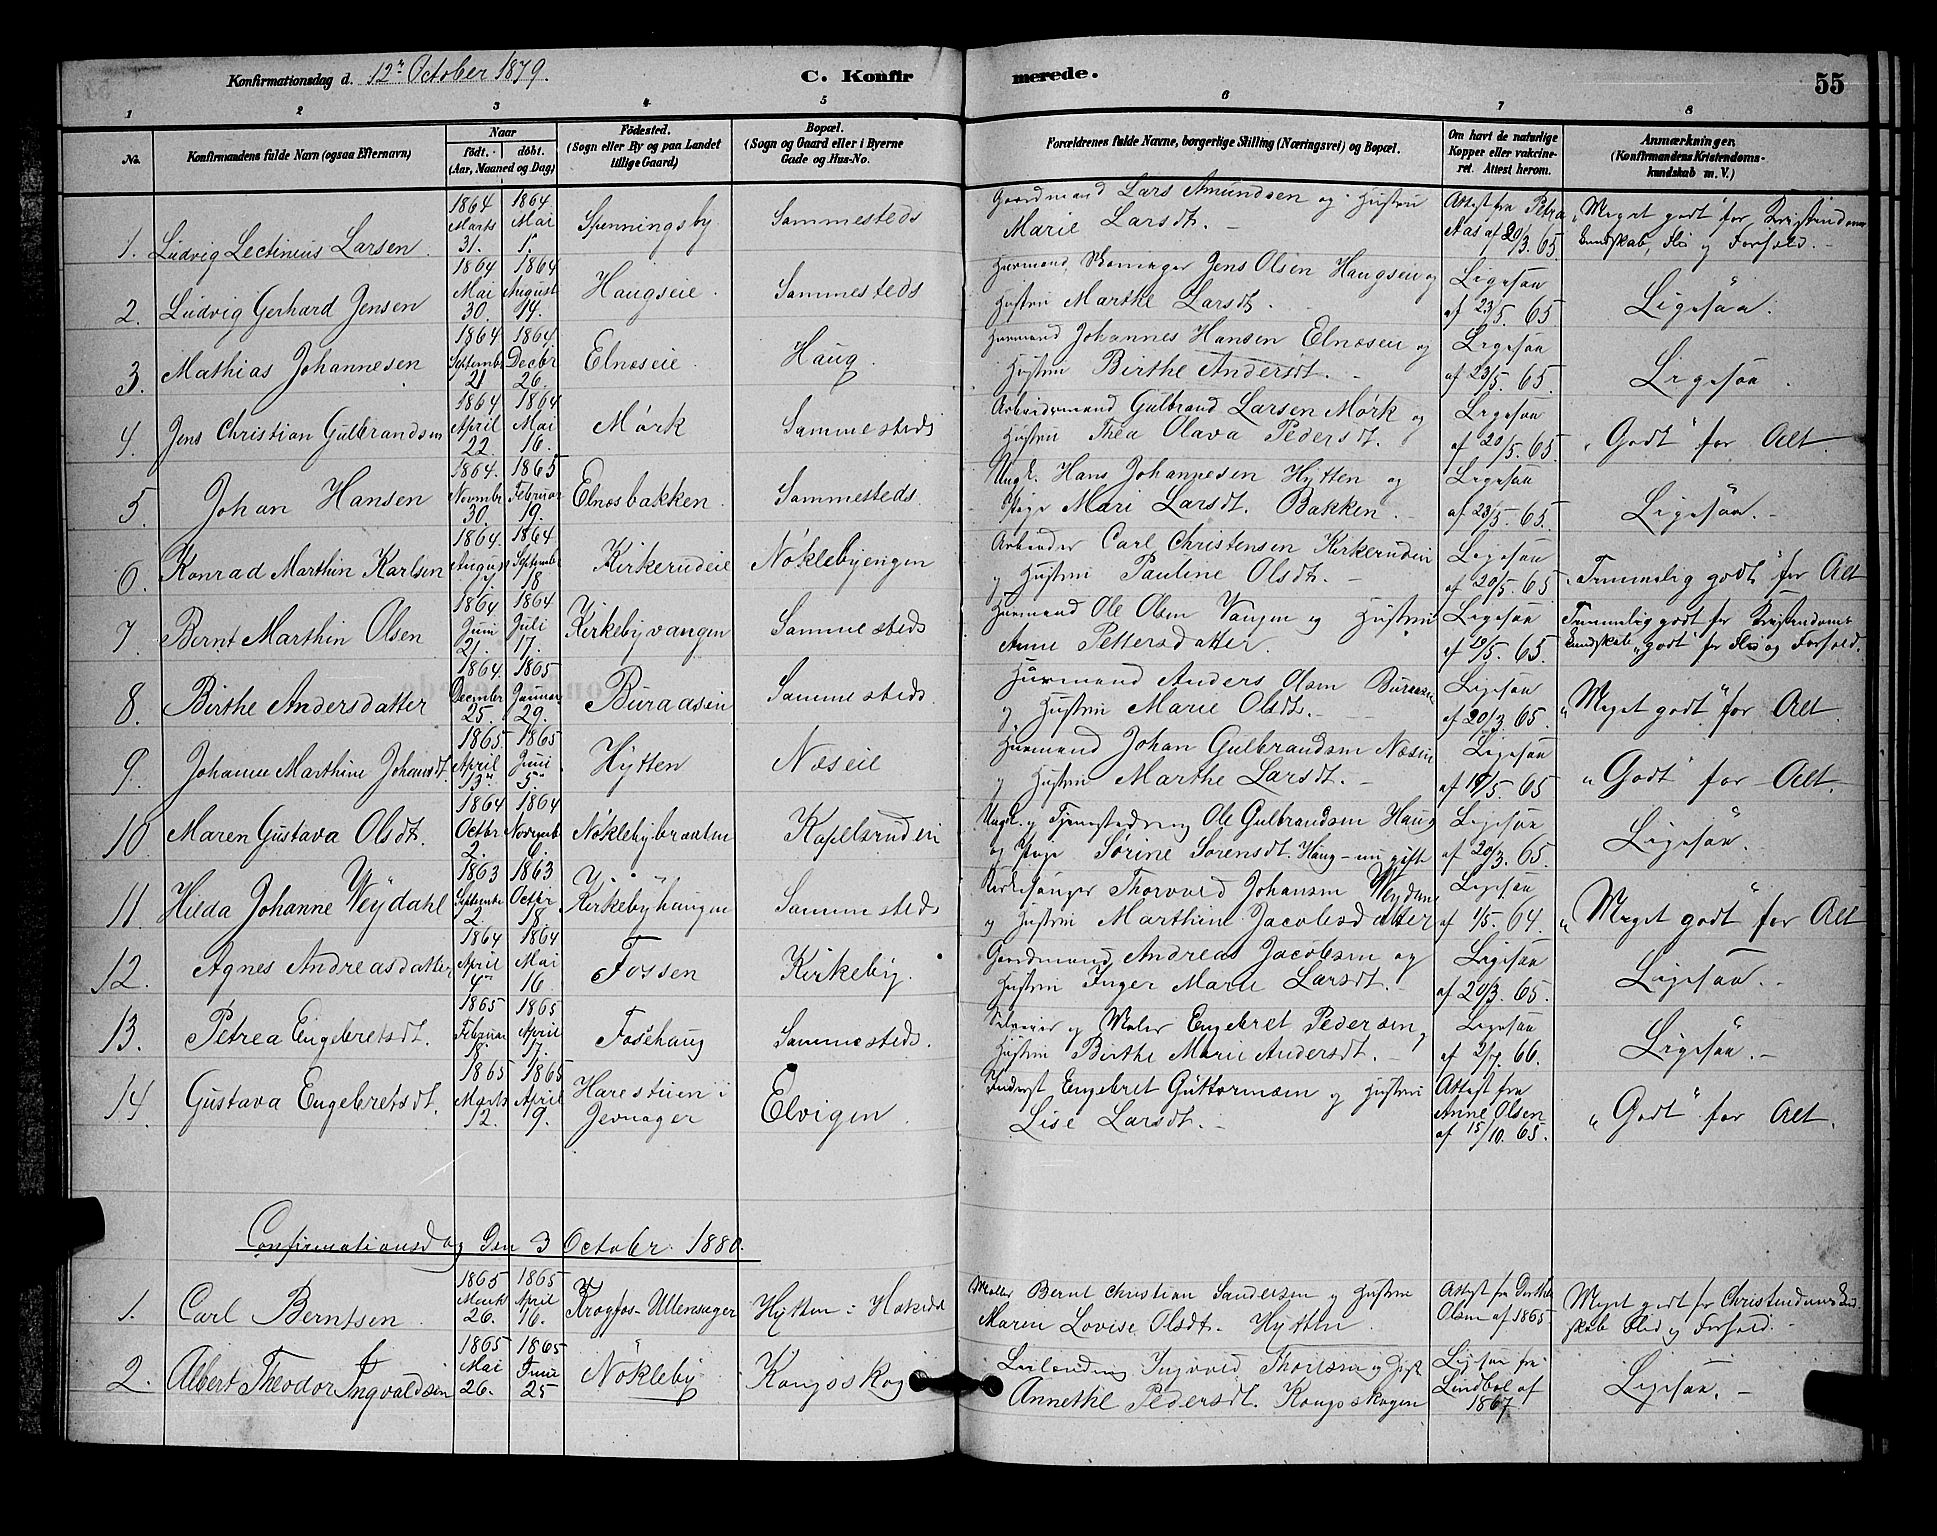 Konfirmationsdag d. 12te October 1879.
C. Konfirmerede.
55
1 2 3 4 5 6 7 8
No. Konfirmandens fulde Navn (ogsaa Efternavn) Naar født. døbt. (Aar, Maaned og Dag) Fødested. (Sogn eller By og paa Landet tillige Gaard) Bopæl. (Sogn og Gaard eller i Byerne Gade og Hus-No. Forældrenes fulde Navne, borgerlige Stilling (Næringsvei) og Bopæl. Om havt de naturlige Kopper eller vakcineret. Attest herom. Anmærkninger. (Konfirmandens Kristendomskundskab m. V.)
1. Ludvig Lectinius Larsen. 1864 Marts 31. 1864 Mai 1. Spenningsby. Sammesteds Gaardmand Lars Amundsen og Hustru Marie Larsdt. Attest fra Petra Aas af 20/3. 65. "Meget godt" for Kristendomskundskab, Flid og Forhold.
2. Ludvig Gerhard Jensen 1864 Mai 30. 1864 August 14. Haugseie. Sammesteds Huusmand, Jens Olsen Haugseie og Hustru Marthe Larsdt. Ligesaa af 23/5. 65. Ligesaa.
3. Mathias Johannesen 1864 Septembr 21 1864 Decbr 26. Elnæseie. Haug. Huusmand Johannes Hansen Elnæseie og Hustru Birthe Andersdt. Ligesaa af 23/5. 65. Ligesaa.
4. Jens Christian Gulbrandsen 1864 April 22. 1864 Mai 16. Mørk Sammesteds Arbeidsmand Gulbrand Larsen Mørk og Hustru Thea Olava Pedersdt. Ligesaa af 20/5. 65. "Godt" for Alt.
5. Johan Hansen 1864. Novmbr 30. 1865 Februar 19. Elnæsbakken. Sammesteds. Ungk. Hans Johannesen Hytten og Pige Mari Larsdt. Bakken. Ligesaa af 23/5. 65. Ligesaa.
6. Konrad Marthin Karlsen 1864. August 7. 1864 Septembr 18. Kirkerudeie Nøklebyengen Arbeider Carl Christensen Kirkerudeie og Hustru Pauline Olsdt. Ligesaa af 20/5. 65 "Temmelig godt" for Alt
7. Bernt Marthin Olsen 1864 Juni 21. 1864 Juli 17. Kirkebyvangen Sammesteds Huusmand Ole Olsen Vangen og Hustru Anne Pettersdatter. Ligesaa 65. Temmelig godt for Kristendomskundskab, "godt" for Flid og Forhold.
8. Birthe Andersdatter 1864 December 25. 1865 Januar 29. Buraaseie Sammesteds. Huusmand Anders Olsen Buraasen og Hustru Marie Olsdt. Ligesaa af 20/3. 65. "Meget godt" for Alt.
9. Johanne Marthine Johansdt. 1865. April 13. 1865 Juni 5. Hytten Næseie Huusmand Johan Gulbrandsen Næseie og Hustru Marthe Larsdt. Ligesaa 65 "Godt" for Alt.
10. Maren Gustava Olsdt. 1864 Octbr 2. 1864 Novemb 6. Nøklebybraaten Kapelsrudeie Ungk. og Tjenestedreng Ole Gulbrandsen Haug og Pige Sørine Sørensdt. Haug - nu gifte Ligesaa af 20/3. 65. Ligesaa.
11. Hilda Johanne Weydahl 1863 Septembr 2. 1863 Octbr 18. Kirkebyhaugen Sammesteds Kirkesanger Thorvald Johansen Weydahl og Hustru Marthine Jacobsdatter Ligesaa af 1/5. 64. "Meget godt" for Alt
12. Agnes Andreasdatter 1864 April 4. 1864 Mai 16. Fossen Kirkeby. Gaardmand Andreas Jacobsen og Hustru Inger Marie Larsdt. Ligesaa af 20/3. 65. Ligesaa.
13. Petrea Engebretsdt. 1865 Februar 18. 1865 April 17. Fossehaug Sammesteds. Selveier og Møler Engebret Pedersen og Hustru Birthe Marie Andersdt. Ligesaa af 2/7. 66. Ligesaa.
14. Gustava Engebretsdt. 1865 Marts 12. 1865 April 9. Harestuen i Jevnager Elvigen Inderst Engebret Guttormsen og Hustru Lise Larsdt. Attest fra Anne Olsen af 15/10. 65. "Godt" for Alt.
Confirmationsdag Den 3 October 1880.
1. Carl Berntsen. 1865 Marts 26. 1865 April 16. Krogfos - Ullensager Hytten i Hakedal Møller Bernt Christian Sandersen og Hustru Maren Lovise Olsdt. Hytten. Attest fra Dorthe Olsen af 1865 Meget godt for Christendomskundskab Flid og Forhold.
2. Albert Theodor Ingvaldsen 1865 Mai 26. 1865 Juni 25 Nökleby Kongsskog Leilending Ingvald Thorsen og Hust Annethe Pedersdt. Kongsskogen Ligesaa fra Lindbol af 1867 Ligesaa.